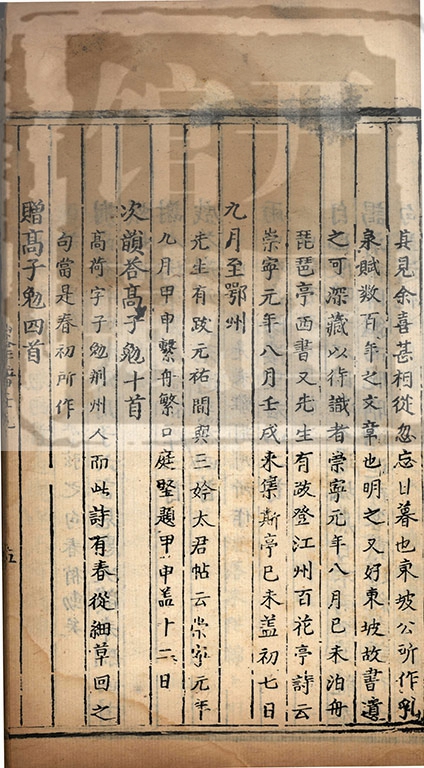 具見余喜甚相從忽忘日暮也東坡公所作乳
泉賦數百年之文章也明之又好東坡故書遺
之可深藏以待識者崇寧元年八月巳未泊舟
琵琶亭西書又先生有跋登江州百花亭詩云
崇寧元年八月壬戌来集斯亭巳未盖初七日
九月至鄂州
先生有跋元祐間與三妗太君帖云崇寧元年
九月甲申繫舟繁口庭堅題甲申盖十二日
次韻荅髙子勉十首
髙荷字子勉荆州人而此詩有春從細草回之
句當是春初所作
贈髙子勉四首